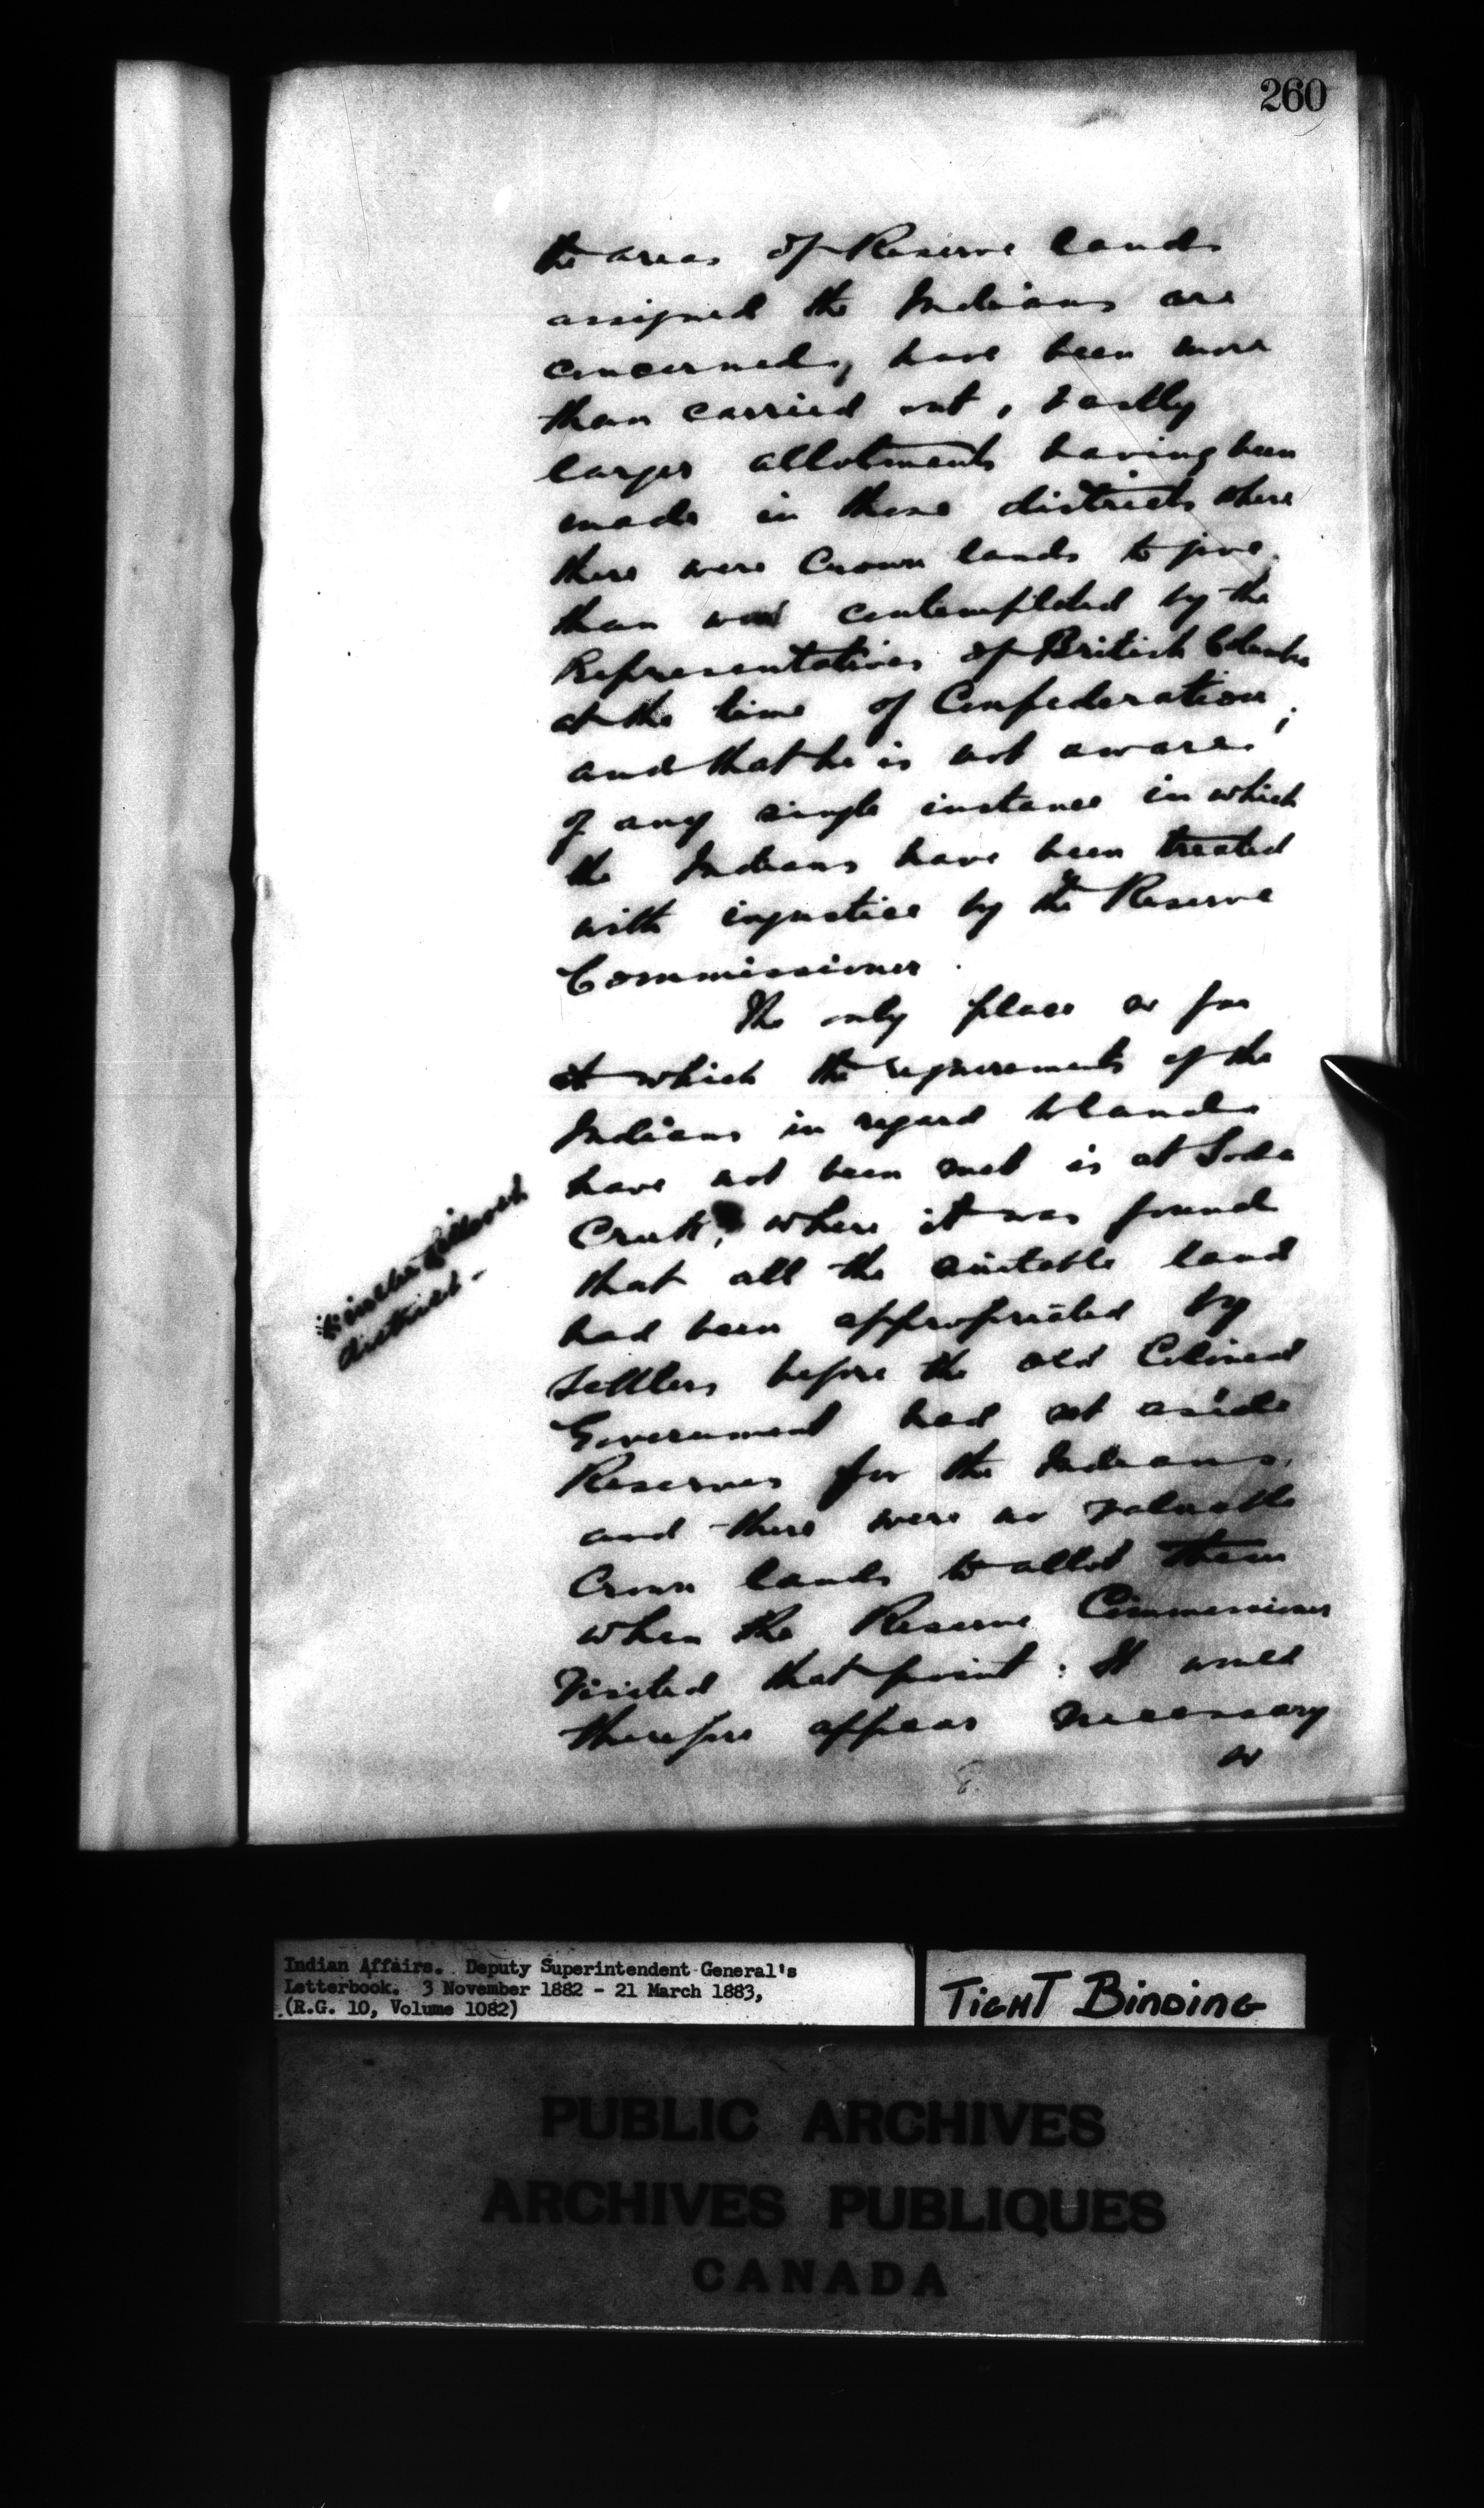 260
the areas of Reserve lands
assigned the Indians are
concerned, have been more
than carried out, vastly
larger allotments having been
made in those districts where
there were Crown lands to give,
than was contemplated by the
Representatives of British Columbia
at the time of Confederation;
and that he is not aware
of any single instance in which
the Indians have been treated
with injustice by the Reserve
Commissioner.
The only place so far
at which the requirements of the
Indians in regard to lands
have not been met is at Soda
Creek, where it was found
in the Lillooet
district -
that all the suitable land
had been appropriated by
settlers before the old Colonial
Government had set aside
Reserves for the Indians,
and there were no valuable
Crown lands to allot them
when the Reserve Commissioner
visited that point: It would
therefore appear necessary
Indian Affairs. Deputy Superintendent General's
Letterbook. 3 November 1882 - 21 March 1883,
(R.G. 10, Volume 1082)
TIGHT BINDING
PUBLIC ARCHIVES
ARCHIVES PUBLIQUES
CANADA